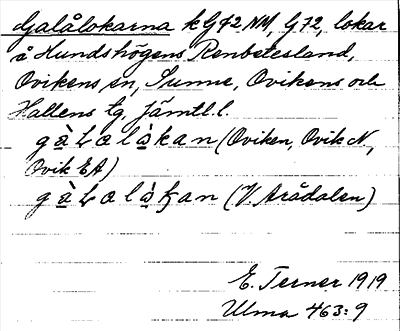 Galålokarna k G72NM, G72, lokar
å Hundshögens Renbetesland,
Ovikens sn, Sunne, Ovikens och
Hallens tg. Jämtl. l.
gàɫalàkan (Oviken, Ovik N,
Ovik EA)
gàɫalàkan (V. Arådalen)
E. Terner 1919
Ulma 463:9